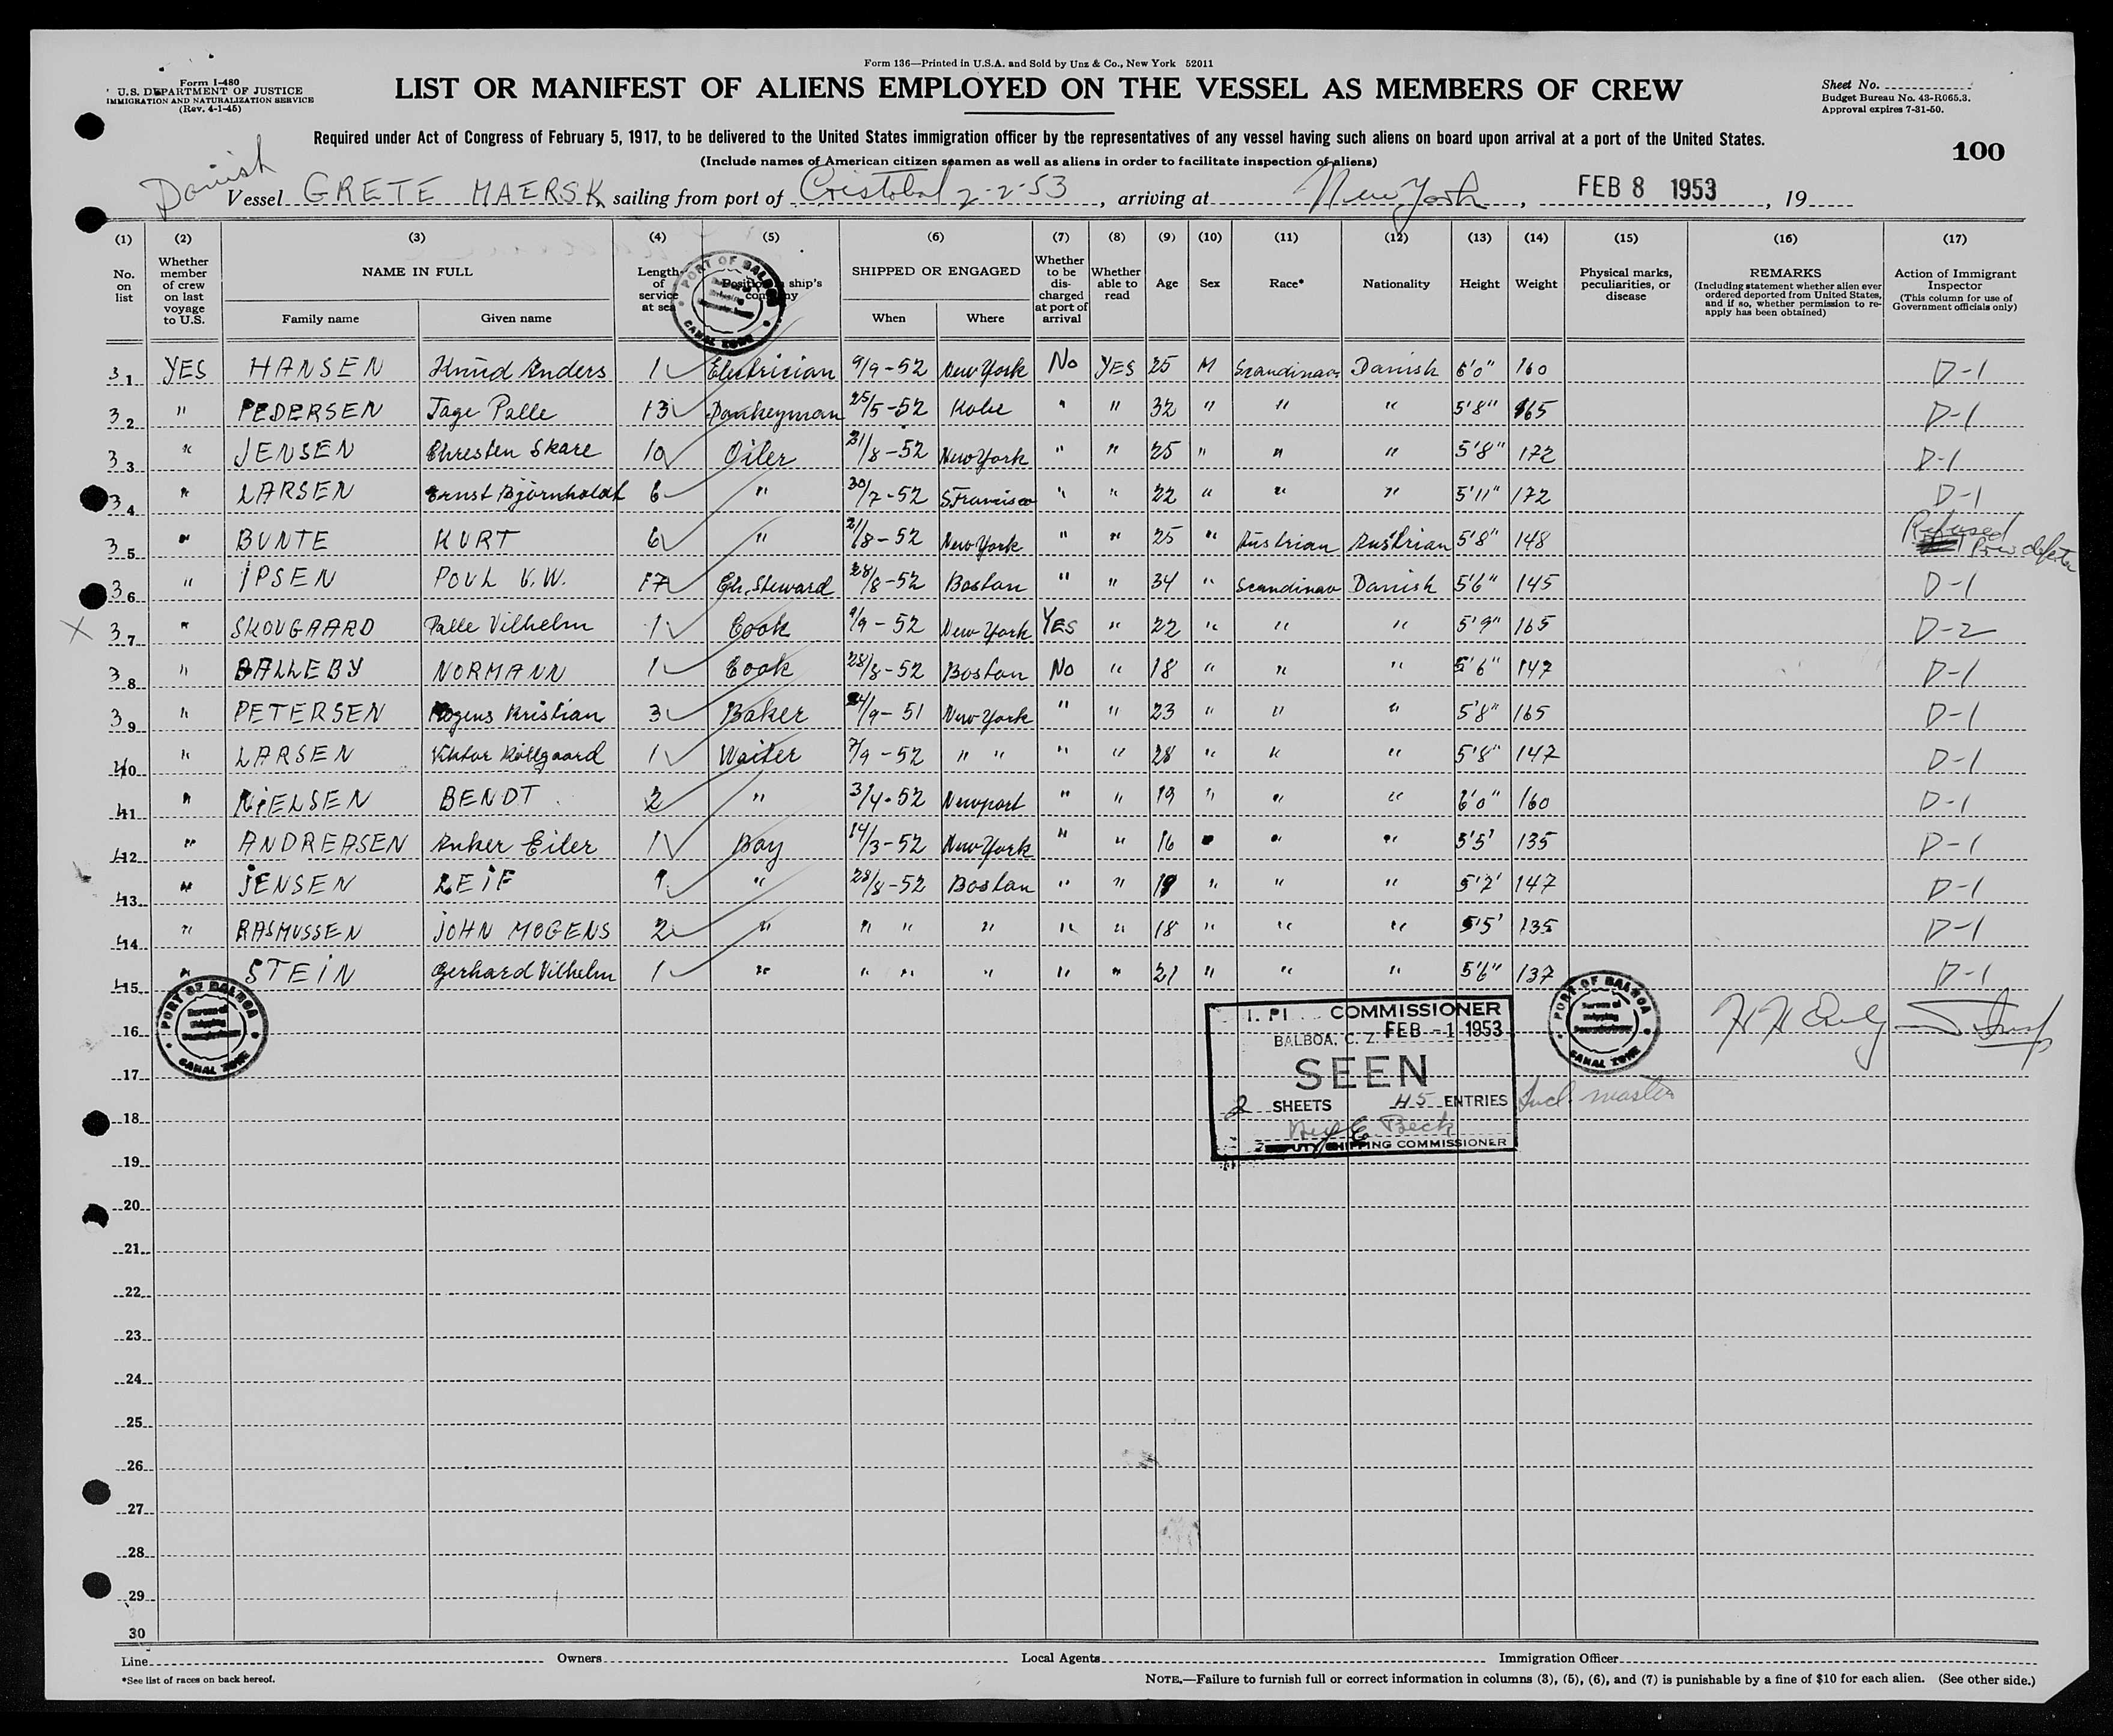 Form 136—Printed in U.S.A. and Sold by Unz & Co., New York 52011
Form I-480
U.S. DEPARTMENT OF JUSTICE
IMMIGRATION AND NATURALIZATION SERVICE
(Rev. 4-1-45)
LIST OR MANIFEST OF ALIENS EMPLOYED ON THE VESSEL AS MEMBERS OF CREW
Sheet No.
Budget Bureau No. 43-R065.3.
Approval expires 7-31-50.
Required under Act of Congress of February 5, 1917, to be delivered to the United States immigration officer by the representatives of any vessel having such aliens on board upon arrival at a port of the United States.
(Include names of American citizen seamen as well as aliens in order to facilitate inspection of aliens)
100
Danish
Vessel GRETE MAERSK sailing from port of Cristobal 2-2-53, arriving at New York, FEB 8 1953, 19
(1) (2) (3) (4) (5) (6) (7) (8) (9) (10) (11) (12) (13) (14) (15) (16) (17)
No. on list
Whether member of crew on last voyage to U.S.
NAME IN FULL
Family name
Given name
Length of service at sea
Position in ship's company
SHIPPED OR ENGAGED
When
Where
Whether to be discharged at port of arrival
Whether able to read
Age
Sex
Race*
Nationality
Height
Weight
Physical marks, peculiarities, or disease
REMARKS
(Including statement whether alien ever ordered deported from United States, and if so, whether permission to reapply has been obtained)
Action of Immigrant Inspector
(This column for use of Government officials only)
PORT OF BALBOA CANAL ZONE
31 YES HANSEN Knud Anders 1 Electrician 9/9-52 New York No YES 25 M Scandinav Danish 6'0" 160 D-1
32 " PEDERSEN Tage Palle 13 Donkeyman 25/5-52 Kobe " " 32 " " " 5'8" 165 D-1
33 " JENSEN Chresten Skare 10 Oiler 21/8-52 New York " " 25 " " " 5'8" 172 D-1
34 " LARSEN Ernst Bjørnholdt 6 " 30/7-52 S.Francisco " " 22 " " " 5'11" 172 D-1
35 " BUNTE KURT 6 " 21/8-52 New York " " 25 " Austrian Austrian 5'8" 148 Refused
36 " IPSEN POUL V.W. 17 Ch. Steward 28/8-52 Boston " " 34 " Scandinav Danish 5'6" 145 D-1
X 37 " SKOUGAARD Palle Vilhelm 1 Cook 9/9-52 New York YES " 22 " " " 5'9" 165 D-2
38 " BALLEBY NORMANN 1 Cook 28/8-52 Boston No " 18 " " " 5'6" 147 D-1
39 " PETERSEN Mogens Kristian 3 Baker 24/9-51 New York " " 23 " " " 5'8" 165 D-1
40 " LARSEN Viktor 1 Waiter 7/9-52 " " " " 28 " " " 5'8" 147 D-1
41 " NIELSEN BENDT 2 " 3/4-52 Newport " " 19 " " " 6'0" 160 D-1
42 " ANDREASEN Anker Eiler 1 Boy 14/3-52 New York " " 16 " " " 5'5' 135 D-1
43 " JENSEN LEIF 1 " 28/8-52 Boston " " 19 " " " 5'7' 147 D-1
44 " RASMUSSEN JOHN MOGENS 2 " " " " " " 18 " " " 5'5' 135 D-1
45 " STEIN Gerhard Vilhelm 1 " " " " " " 21 " " " 5'6" 137 D-1
PORT OF BALBOA Bureau of Shipping CANAL ZONE
COMMISSIONER
BALBOA, C. Z. FEB -1 1953
SEEN
2 SHEETS 45 ENTRIES Incl. master
E. Beck
DEPUTY SHIPPING COMMISSIONER
PORT OF BALBOA Bureau of Shipping CANAL ZONE
16
17
18
19
20
21
22
23
24
25
26
27
28
29
30
Line Owners Local Agents Immigration Officer
*See list of races on back hereof.
NOTE.—Failure to furnish full or correct information in columns (3), (5), (6), and (7) is punishable by a fine of $10 for each alien. (See other side.)